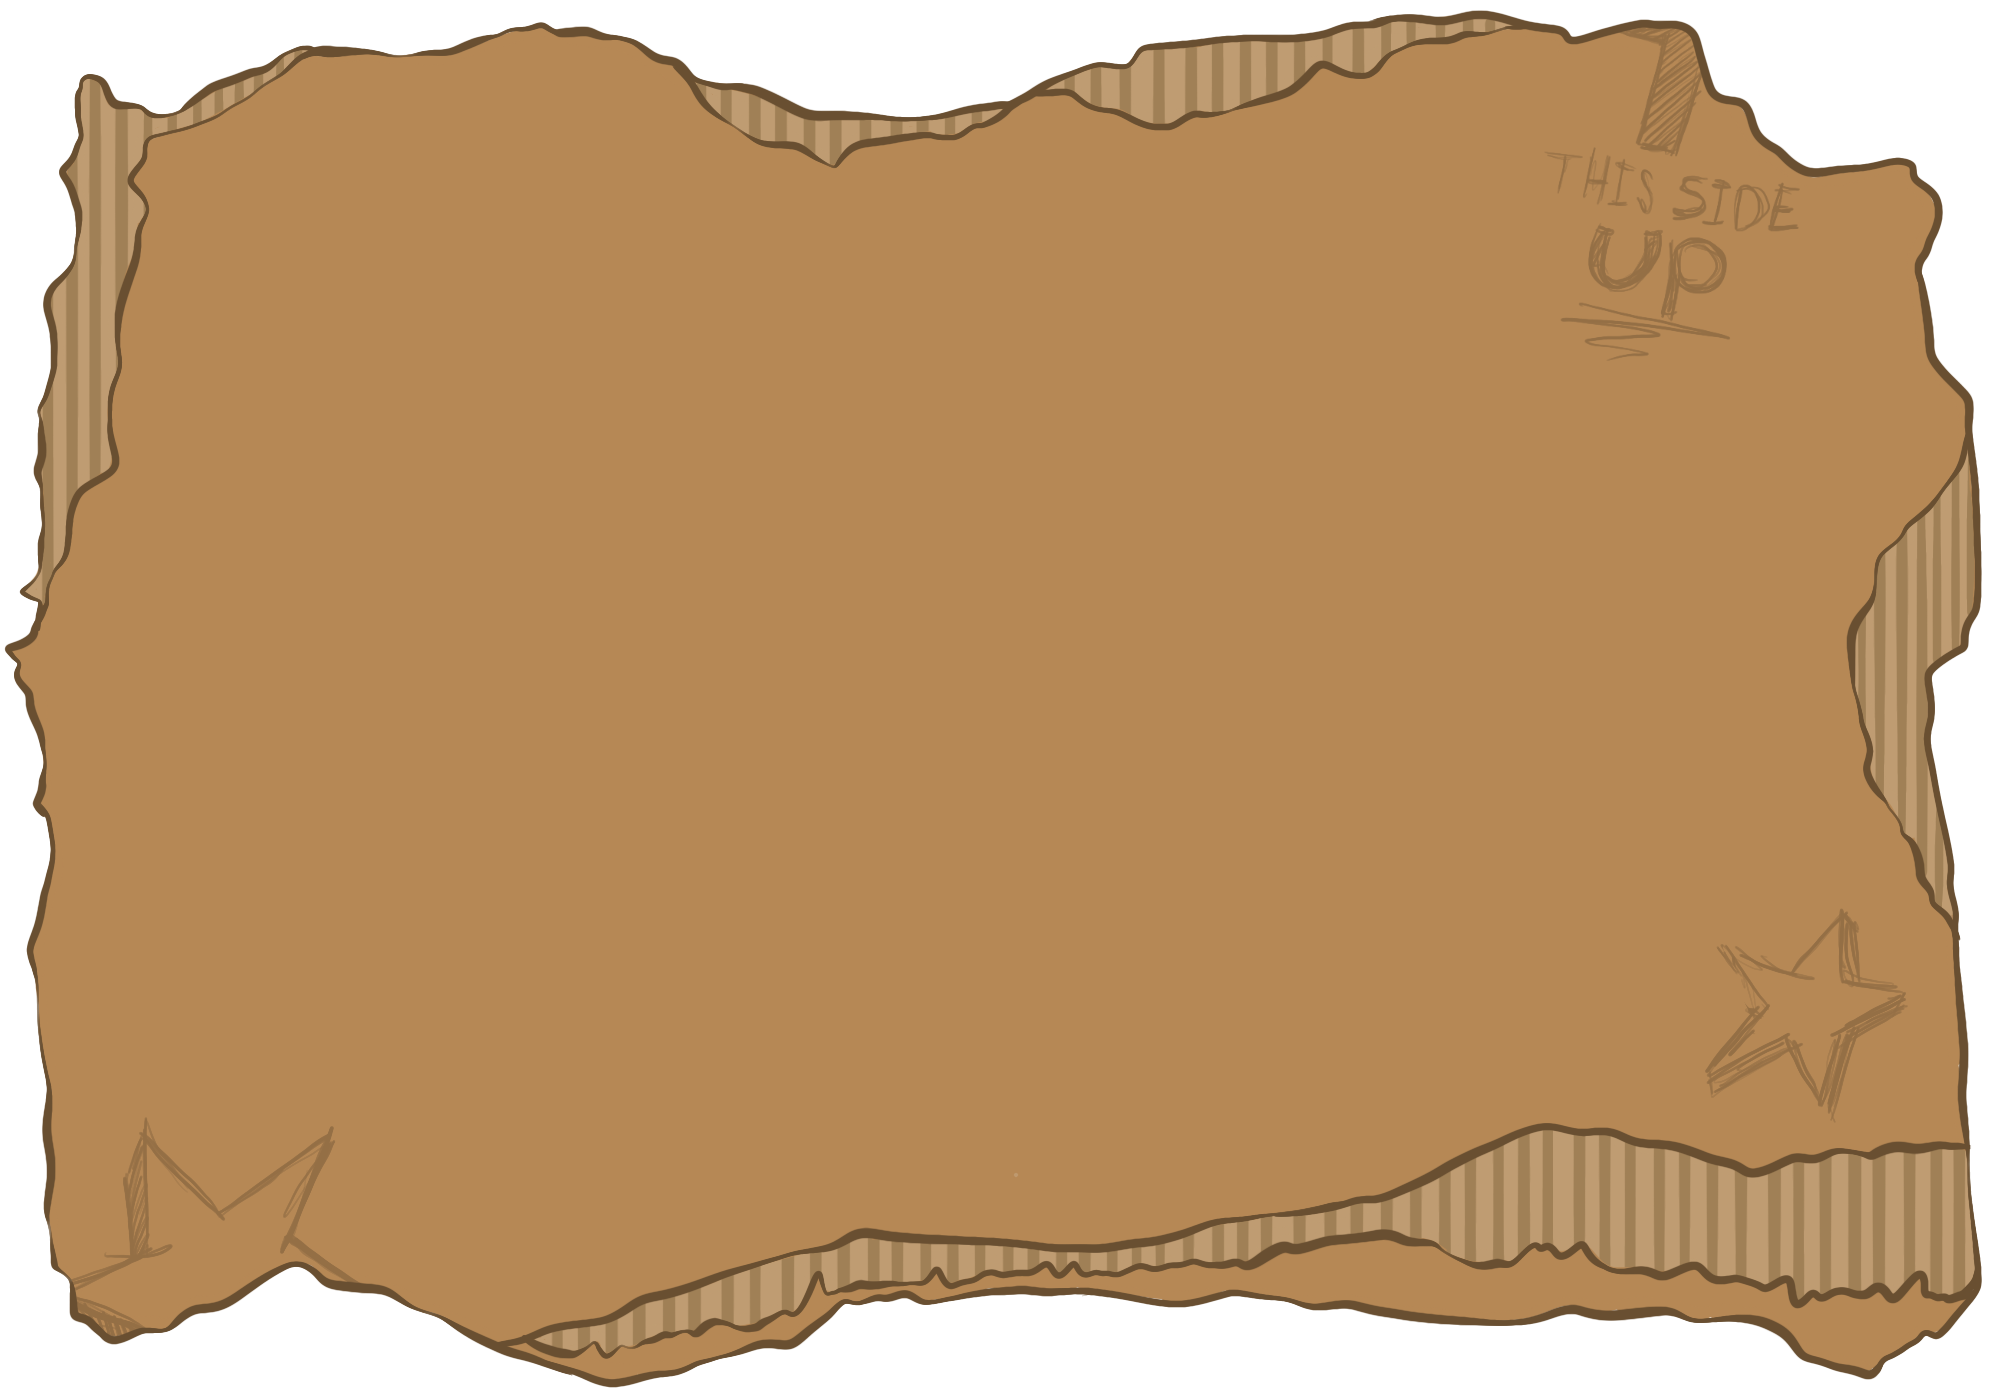 THIS SIDE
UP